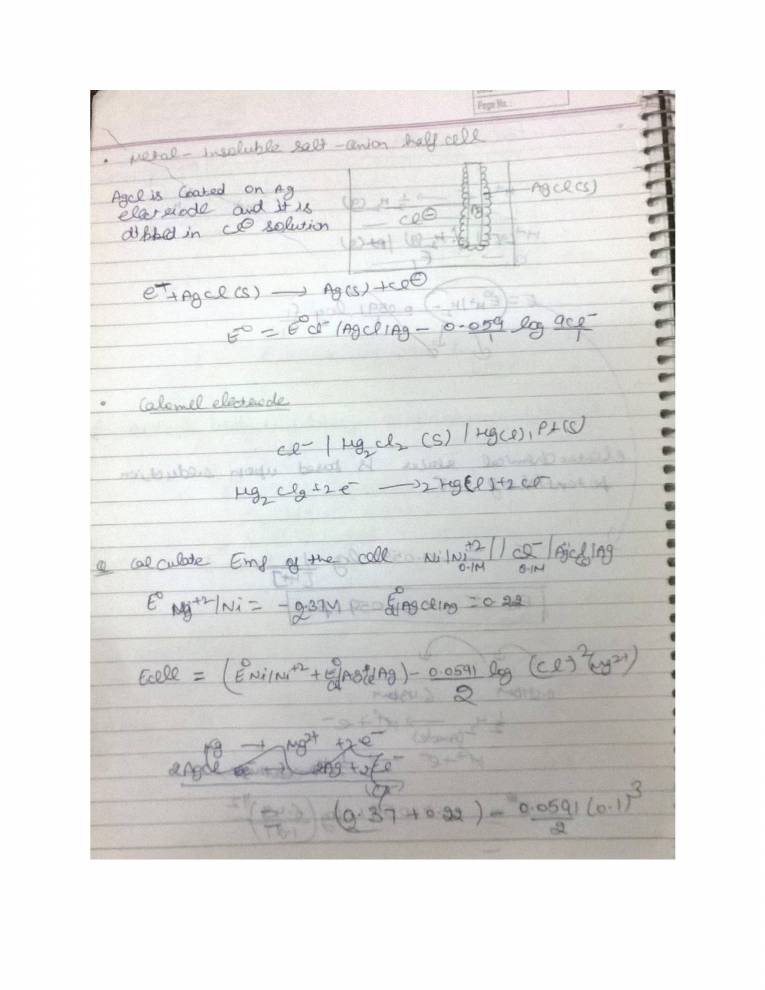 Page No.:
• Metal - insoluble salt - anion half cell
AgCl is coated on Ag
electrode and it is
dipped in Cl⊖ solution
AgCl(s)
Cl⊖
e⁻ + AgCl(s) ⟶ Ag(s) + Cl⊖
E⁰ = E⁰ Cl⁻/AgCl/Ag - 0.059/1 log aCl⁻/1
• Calomel electrode
Cl⁻ | Hg₂Cl₂ (s) | Hg(l), Pt(s)
Hg₂Cl₂ + 2e⁻ ⟶ 2Hg(l) + 2Cl⁻
Q Calculate Emf of the cell Ni|Ni⁺² 0.1M || Cl⁻ 0.1M |AgCl(s)|Ag
E⁰ Mg⁺²/Ni = -2.37V E⁰ Cl/AgCl/Ag = 0.22
Ecell = (E⁰Ni/Ni⁺² + E⁰Cl/AgCl/Ag) - 0.0591/2 log (Cl⁻)² (Mg²⁺)
Mg → Mg²⁺ + 2e⁻
2AgCl 2Ag + 2Cl⁻
(Cl⁻)
(2.37 + 0.22) - 0.0591/2 (0.1)³